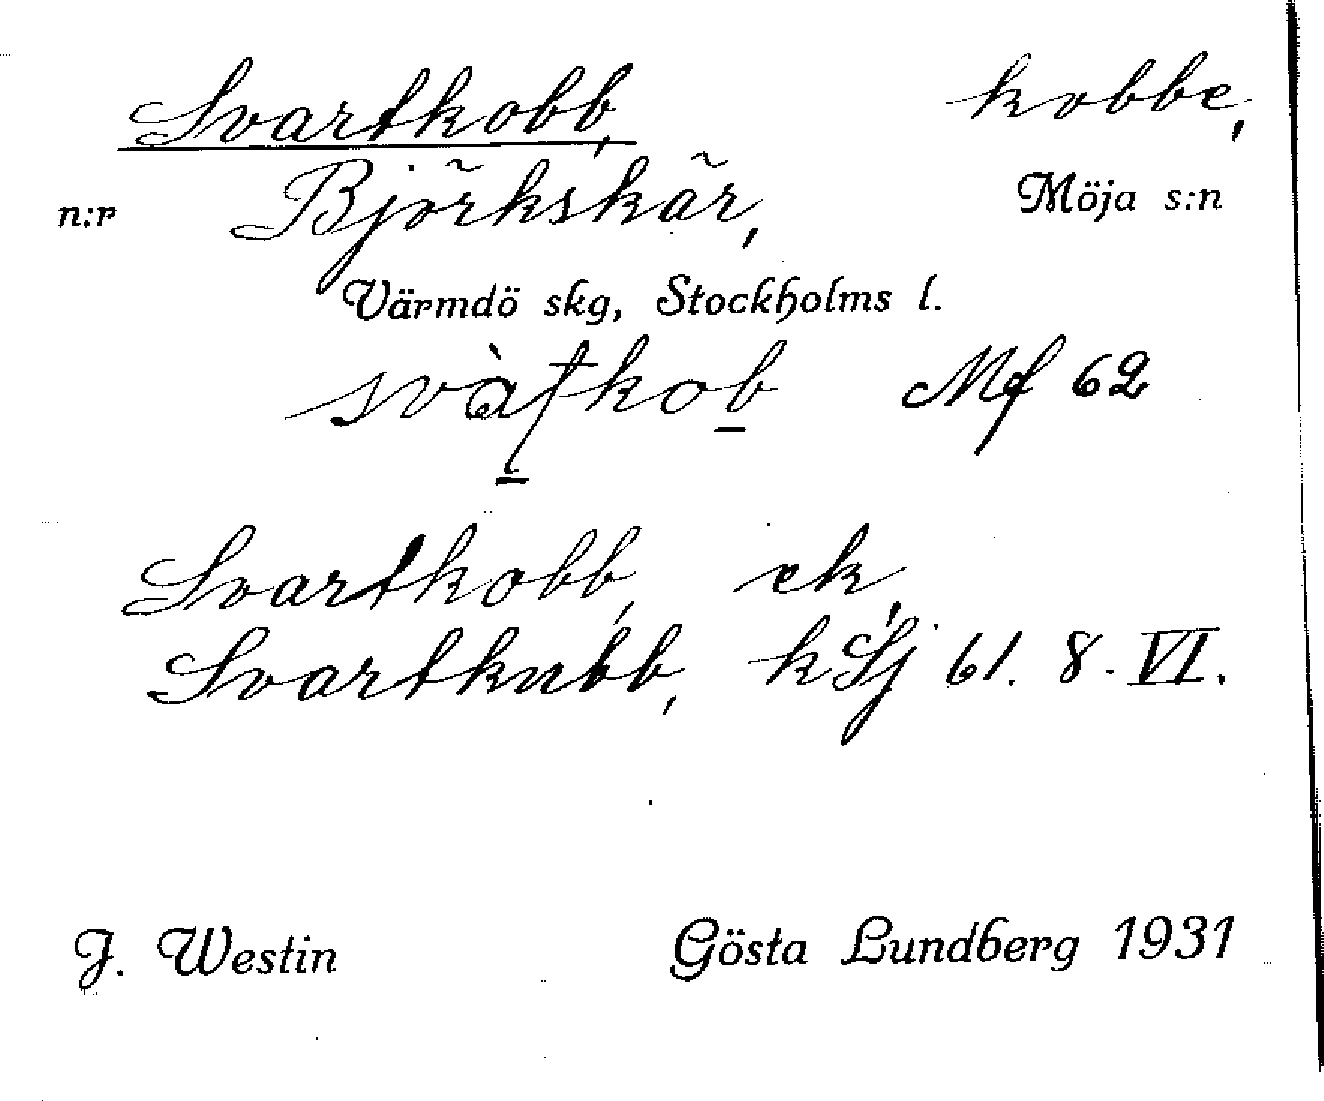 Svartkobb, kobbe,
n:r Björkskär, Möja s:n
Värmdö skg, Stockholms l.
svàtkob Mf 62
Svartkobb, ek,
Svartkubb, k Sj 61. 8. VI.
J. Westin Gösta Lundberg 1931